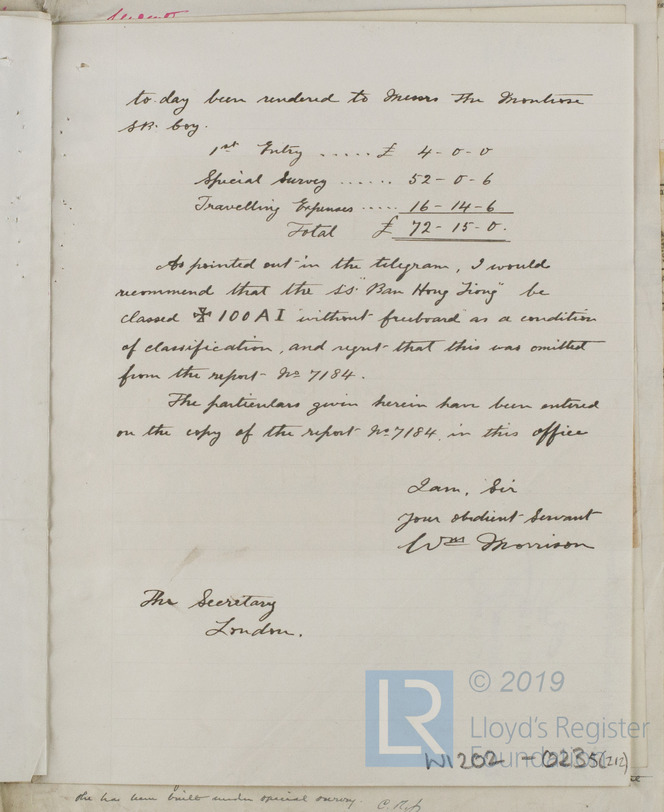 to-day been rendered to Messrs The Montrose
SB. Coy.
1st Entry ..... £ 4-0-0
Special Survey ...... 52-0-6
Travelling Expenses ..... 16-14-6
Total £ 72-15-0.
As pointed out in the telegram, I would
recommend that the SS "Ban Hong Liong" be
classed ✠ 100A1 "without freeboard" as a condition
of classification, and regret that this was omitted
from the report No 7184.
The particulars given herein have been entered
on the copy of the report No 7184 in this office
I am, Sir
Your obedient Servant
Wm Morrison
The Secretary
London.
LR © 2019
Lloyd's Register
Foundation
W1202 - 0235 (2/2)
She has been built under special survey.